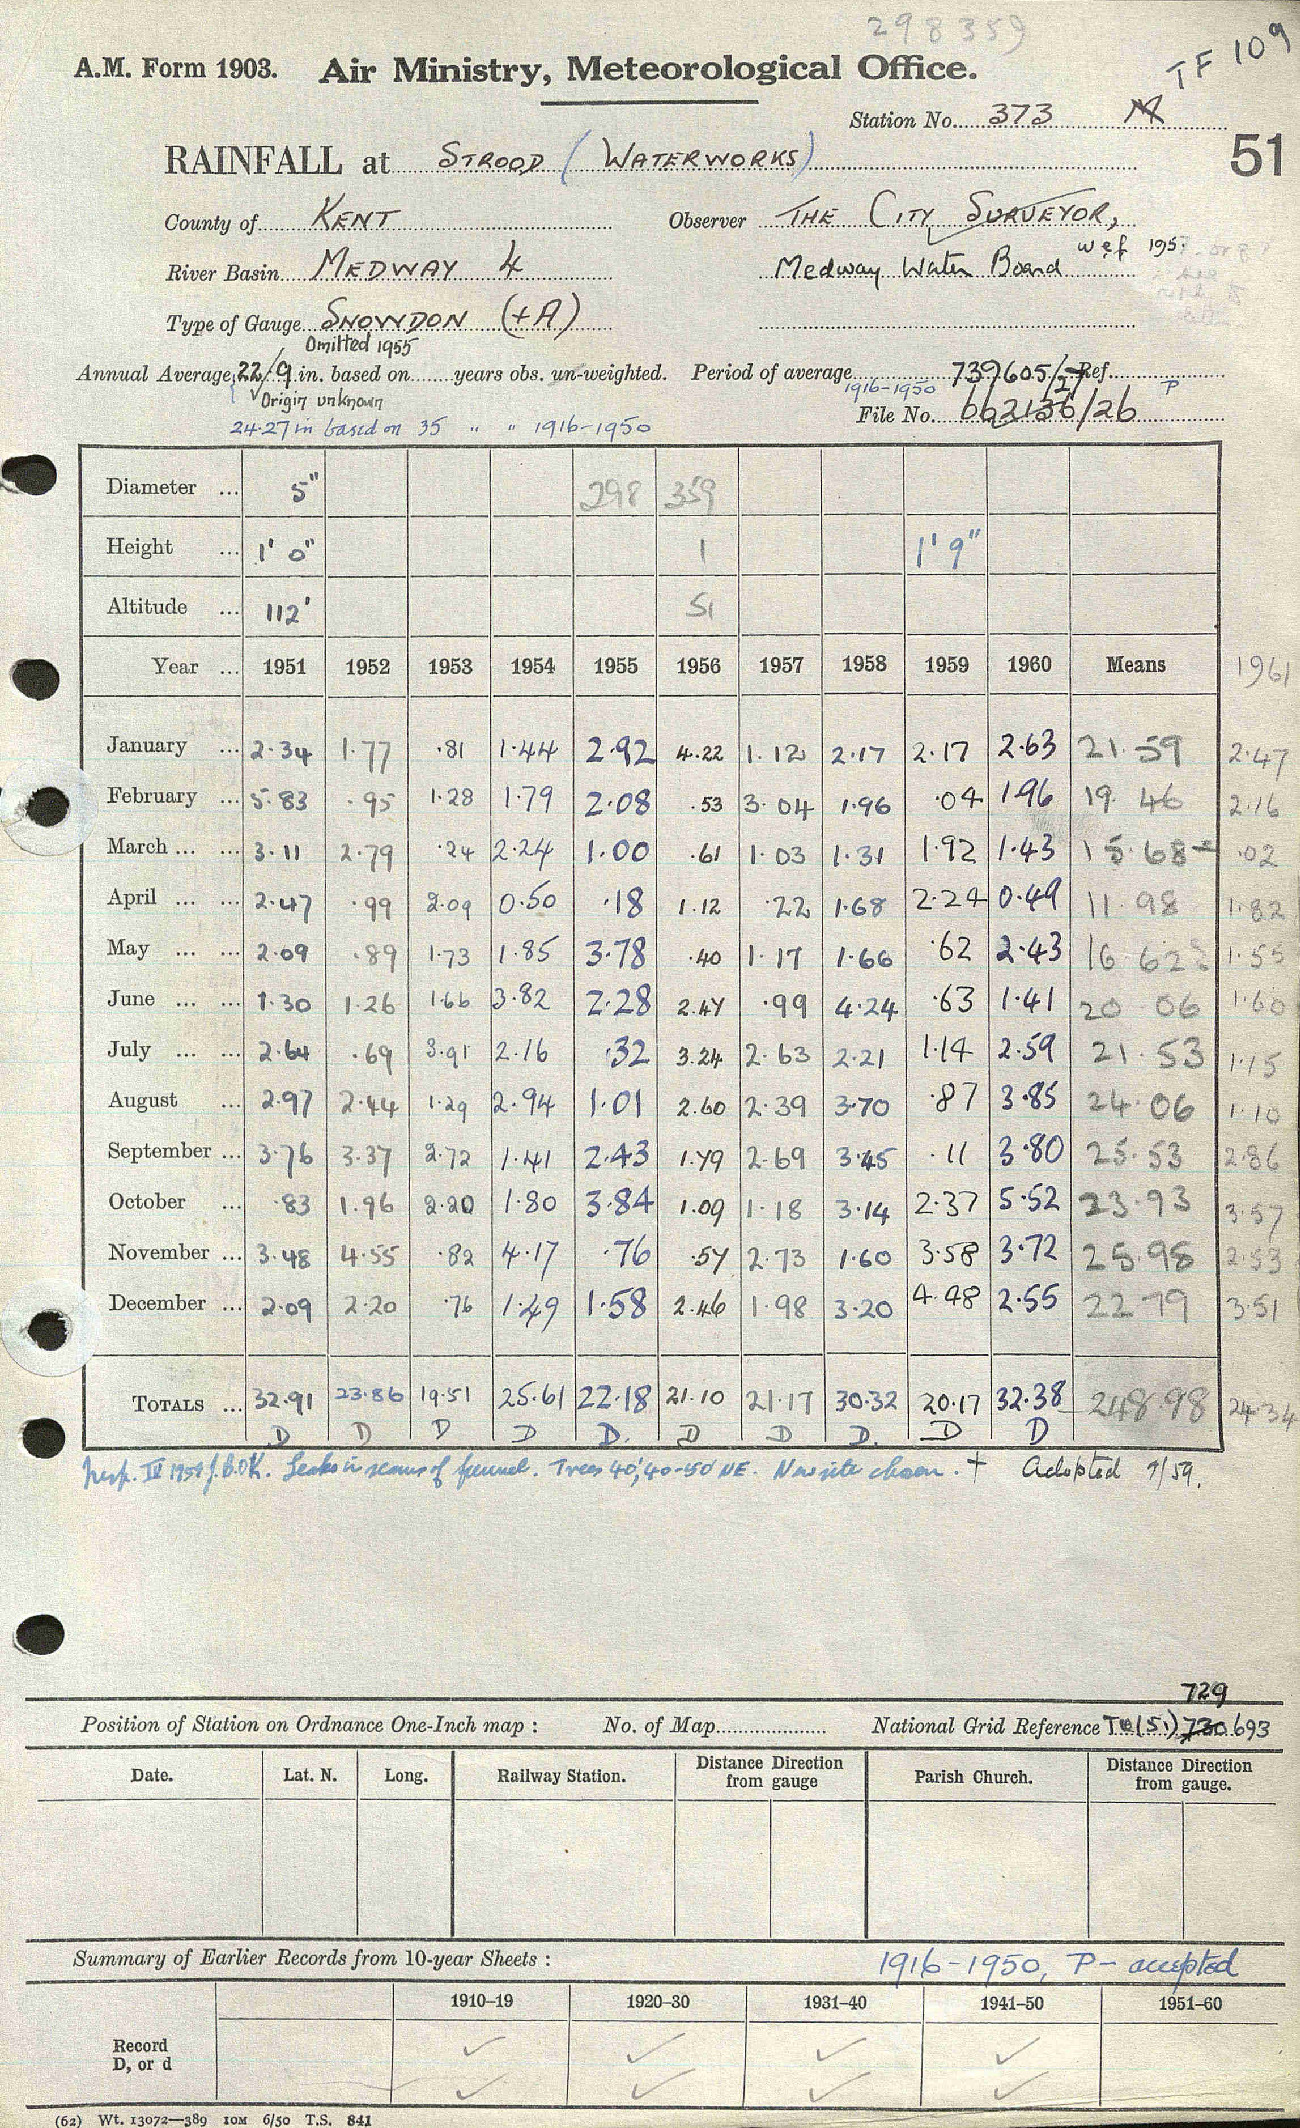 298359
TF 109
A.M. Form 1903. Air Ministry, Meteorological Office.
Station No. 373 M
51
RAINFALL at STROOD (WATERWORKS)
County of KENT Observer THE CITY SURVEYOR,
River Basin MEDWAY 4 Medway Water Board wef 195
Type of Gauge SNOWDON (+A)
Omitted 1955
Annual Average, 22/9 in. based on years obs. un-weighted. Period of average 739605/27 Ref.
Origin unknown 1916-1950 File No. 662136/26 P
24.27 in based on 35 " " 1916-1950
Diameter ... 5" 298 359
Height ... 1' 0" 1 1' 9"
Altitude ... 112' 51
Year ... 1951 1952 1953 1954 1955 1956 1957 1958 1959 1960 Means 1961
January ... 2.34 1.77 .81 1.44 2.92 4.22 1.12 2.17 2.17 2.63 21.59 2.47
February ... 5.83 .95 1.28 1.79 2.08 .53 3.04 1.96 .04 1.96 19.46 2.16
March ... ... 3.11 2.79 .24 2.24 1.00 .61 1.03 1.31 1.92 1.43 15.68 .02
April ... ... 2.47 .99 2.09 0.50 .18 1.12 .22 1.68 2.24 0.49 11.98 1.82
May ... ... 2.09 .89 1.73 1.85 3.78 .40 1.17 1.66 .62 2.43 16.62 1.55
June ... ... 1.30 1.26 1.66 3.82 2.28 2.47 .99 4.24 .63 1.41 20 06 1.60
July ... ... 2.64 .69 3.91 2.16 .32 3.24 2.63 2.21 1.14 2.59 21 53 1.15
August ... 2.97 2.44 1.29 2.94 1.01 2.60 2.39 3.70 .87 3.85 24.06 1.10
September ... 3.76 3.37 2.72 1.41 2.43 1.79 2.69 3.45 .11 3.80 25.53 2.86
October ... .83 1.96 2.20 1.80 3.84 1.09 1.18 3.14 2.37 5.52 23.93 3.57
November ... 3.48 4.55 .82 4.17 .76 .57 2.73 1.60 3.58 3.72 25.98 2.53
December ... 2.09 2.20 .76 1.49 1.58 2.46 1.98 3.20 4.48 2.55 22 79 3.51
TOTALS ... 32.91 23.86 19.51 25.61 22.18 21.10 21.17 30.32 20.17 32.38 248.98 24.34
D D D D D. D D D. D D
Insp. IV 1959 J.B.O.K. Leaks in seams of funnel. Trees 40', 40-50' NE. New site chosen. + Adopted 7/59.
729
Position of Station on Ordnance One-Inch map : No. of Map National Grid Reference TQ(51) 730 693
Date. Lat. N. Long. Railway Station. Distance Direction from gauge Parish Church. Distance Direction from gauge.
Summary of Earlier Records from 10-year Sheets : 1916-1950, P - accepted
1910–19 1920–30 1931–40 1941–50 1951–60
Record ✓ ✓ ✓ ✓
D, or d ✓ ✓ ✓ ✓
(62) Wt. 13072—389 10M 6/50 T.S. 841